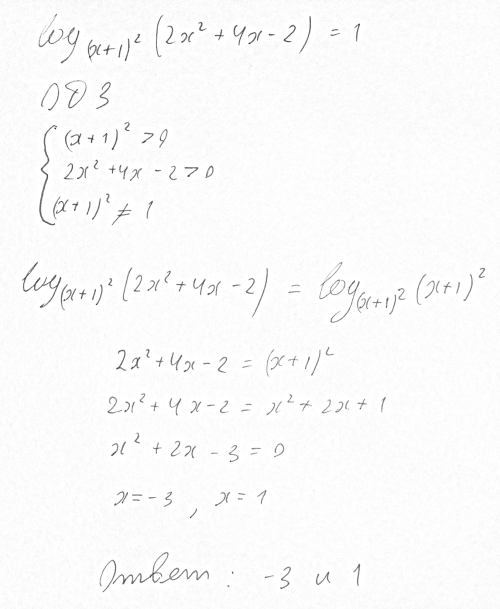 log₍ₓ₊₁₎² (2x² + 4x - 2) = 1
ОДЗ
(x+1)² > 0
2x² + 4x - 2 > 0
(x+1)² ≠ 1
log₍ₓ₊₁₎² (2x² + 4x - 2) = log₍ₓ₊₁₎² (x+1)²
2x² + 4x - 2 = (x+1)²
2x² + 4x - 2 = x² + 2x + 1
x² + 2x - 3 = 0
x = -3 , x = 1
Ответ : -3 и 1